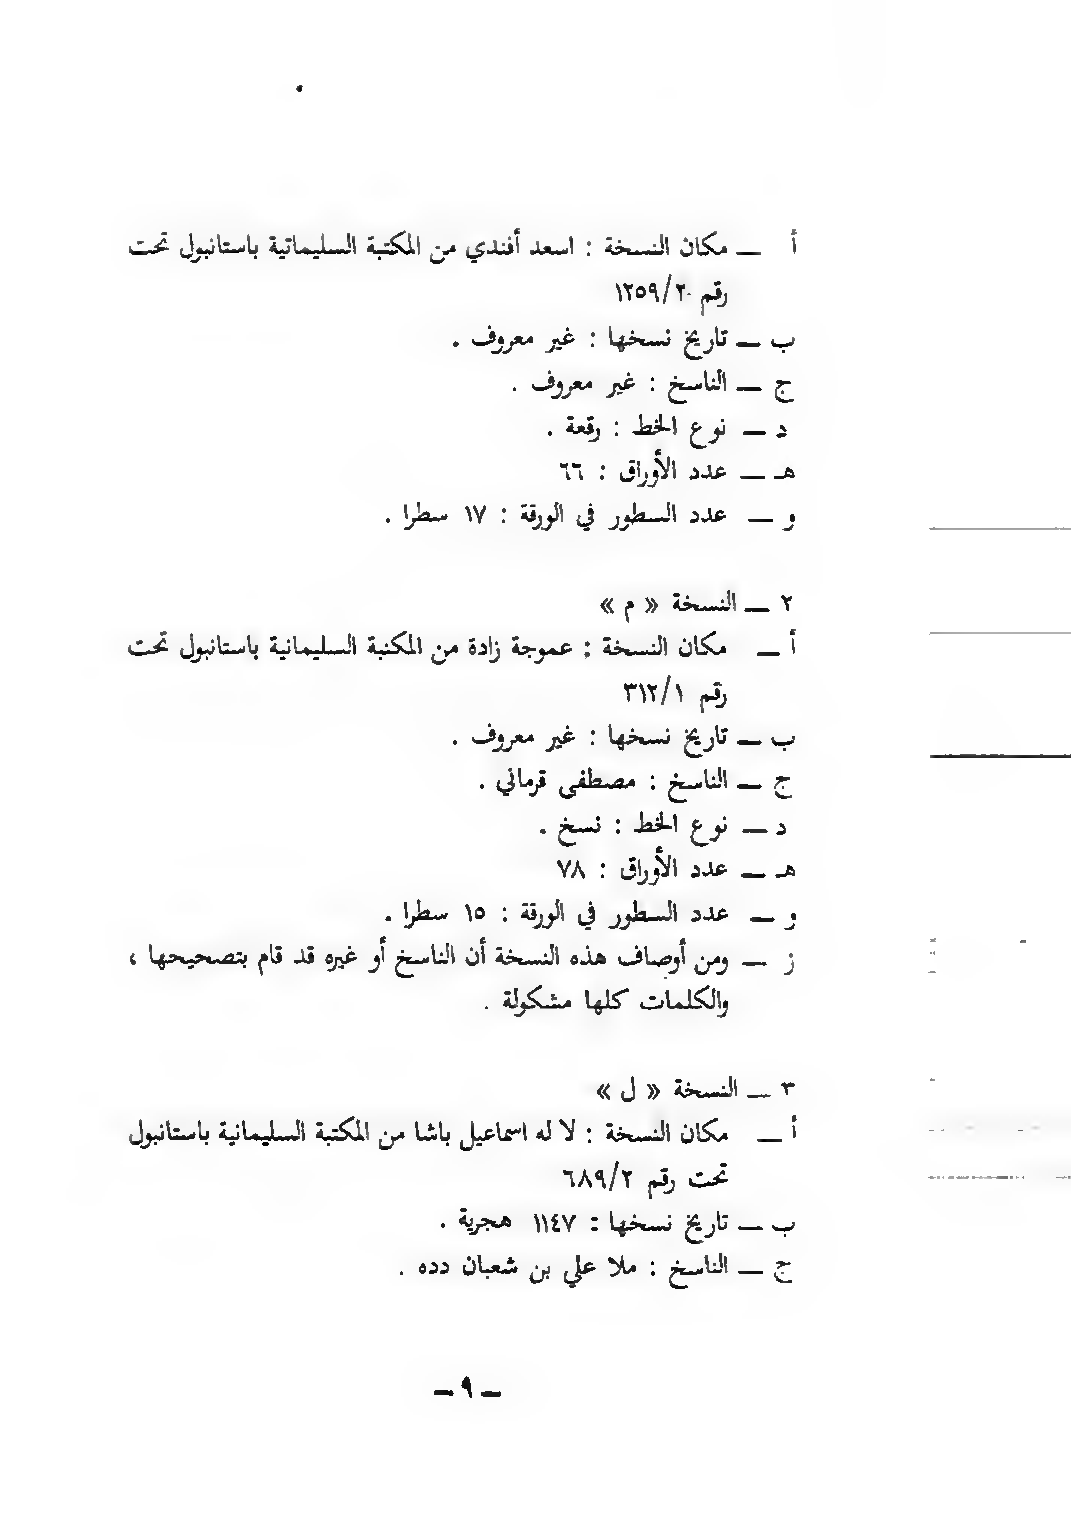 أ — مكان النسخة : اسعد أفندي من المكتبة السليماتية باستانبول تحت
رقم ١٢٥٩/٢٠
ب — تاريخ نسخها : غير معروف .
ج — الناسخ : غير معروف .
د — نوع الخط : رقعة .
هـ — عدد الأوراق : ٦٦
و — عدد السطور في الورقة : ١٧ سطرا .
٢ — النسخة « م »
أ — مكان النسخة : عموجة زادة من المكتبة السليمانية باستانبول تحت
رقم ٣١٢/١
ب — تاريخ نسخها : غير معروف .
ج — الناسخ : مصطفى قرماني .
د — نوع الخط : نسخ .
هـ — عدد الأوراق : ٧٨
و — عدد السطور في الورقة : ١٥ سطرا .
ز — ومن أوصاف هذه النسخة أن الناسخ أو غيره قد قام بتصحيحها ،
والكلمات كلها مشكولة .
٣ — النسخة « ل »
أ — مكان النسخة : لا له اسماعيل باشا من المكتبة السليمانية باستانبول
تحت رقم ٦٨٩/٢
ب — تاريخ نسخها : ١١٤٧ هجرية .
ج — الناسخ : ملا علي بن شعبان دده .
— ٩ —